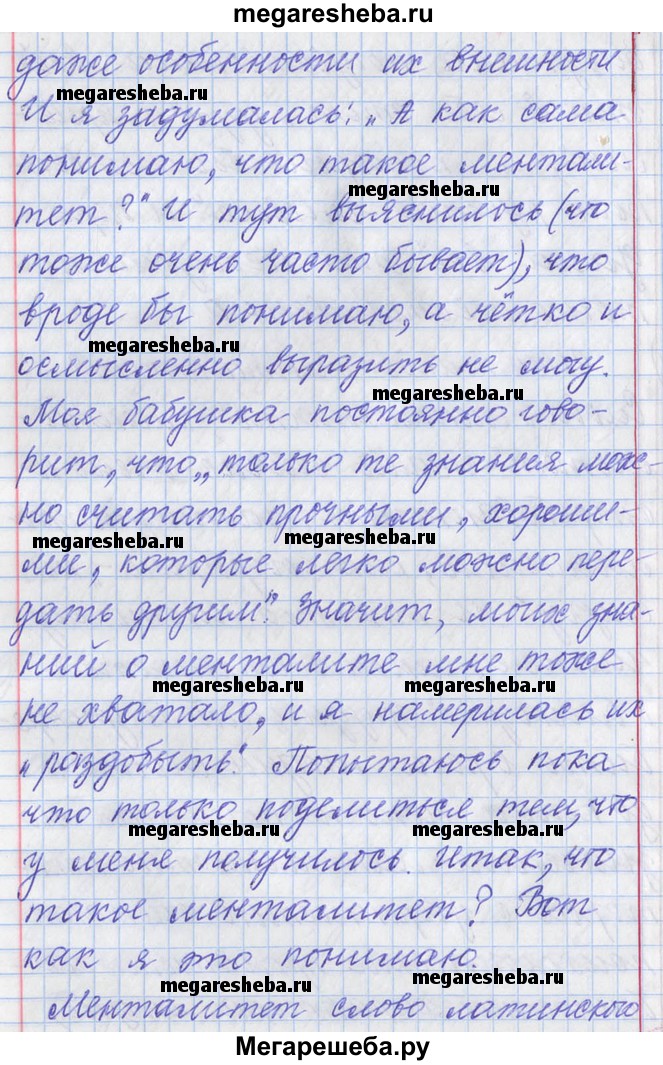 megaresheba.ru
даже особенности их внешности
megaresheba.ru
И я задумалась: „А как сама
понимаю, что такое ментали-
megaresheba.ru
тет?" И тут выяснилось (что
тоже очень часто бывает), что
вроде бы понимаю, а чётко и
megaresheba.ru
осмысленно выразить не могу.
megaresheba.ru
Моя бабушка постоянно гово-
рит, что „только те знания мож-
но считать прочными, хороши-
megaresheba.ru megaresheba.ru
ми, которые легко можно пере-
дать другим". Значит, моих зна-
ний о менталите мне тоже
megaresheba.ru megaresheba.ru
не хватало, и я намерилась их
„раздобыть". Попытаюсь пока
что только поделиться тем, что
megaresheba.ru megaresheba.ru
у меня получилось. Итак, что
такое менталитет? Вот
как я это понимаю.
megaresheba.ru megaresheba.ru
Менталитет слово латинского
megaresheba.ru megaresheba.ru
Мегарешеба.ру